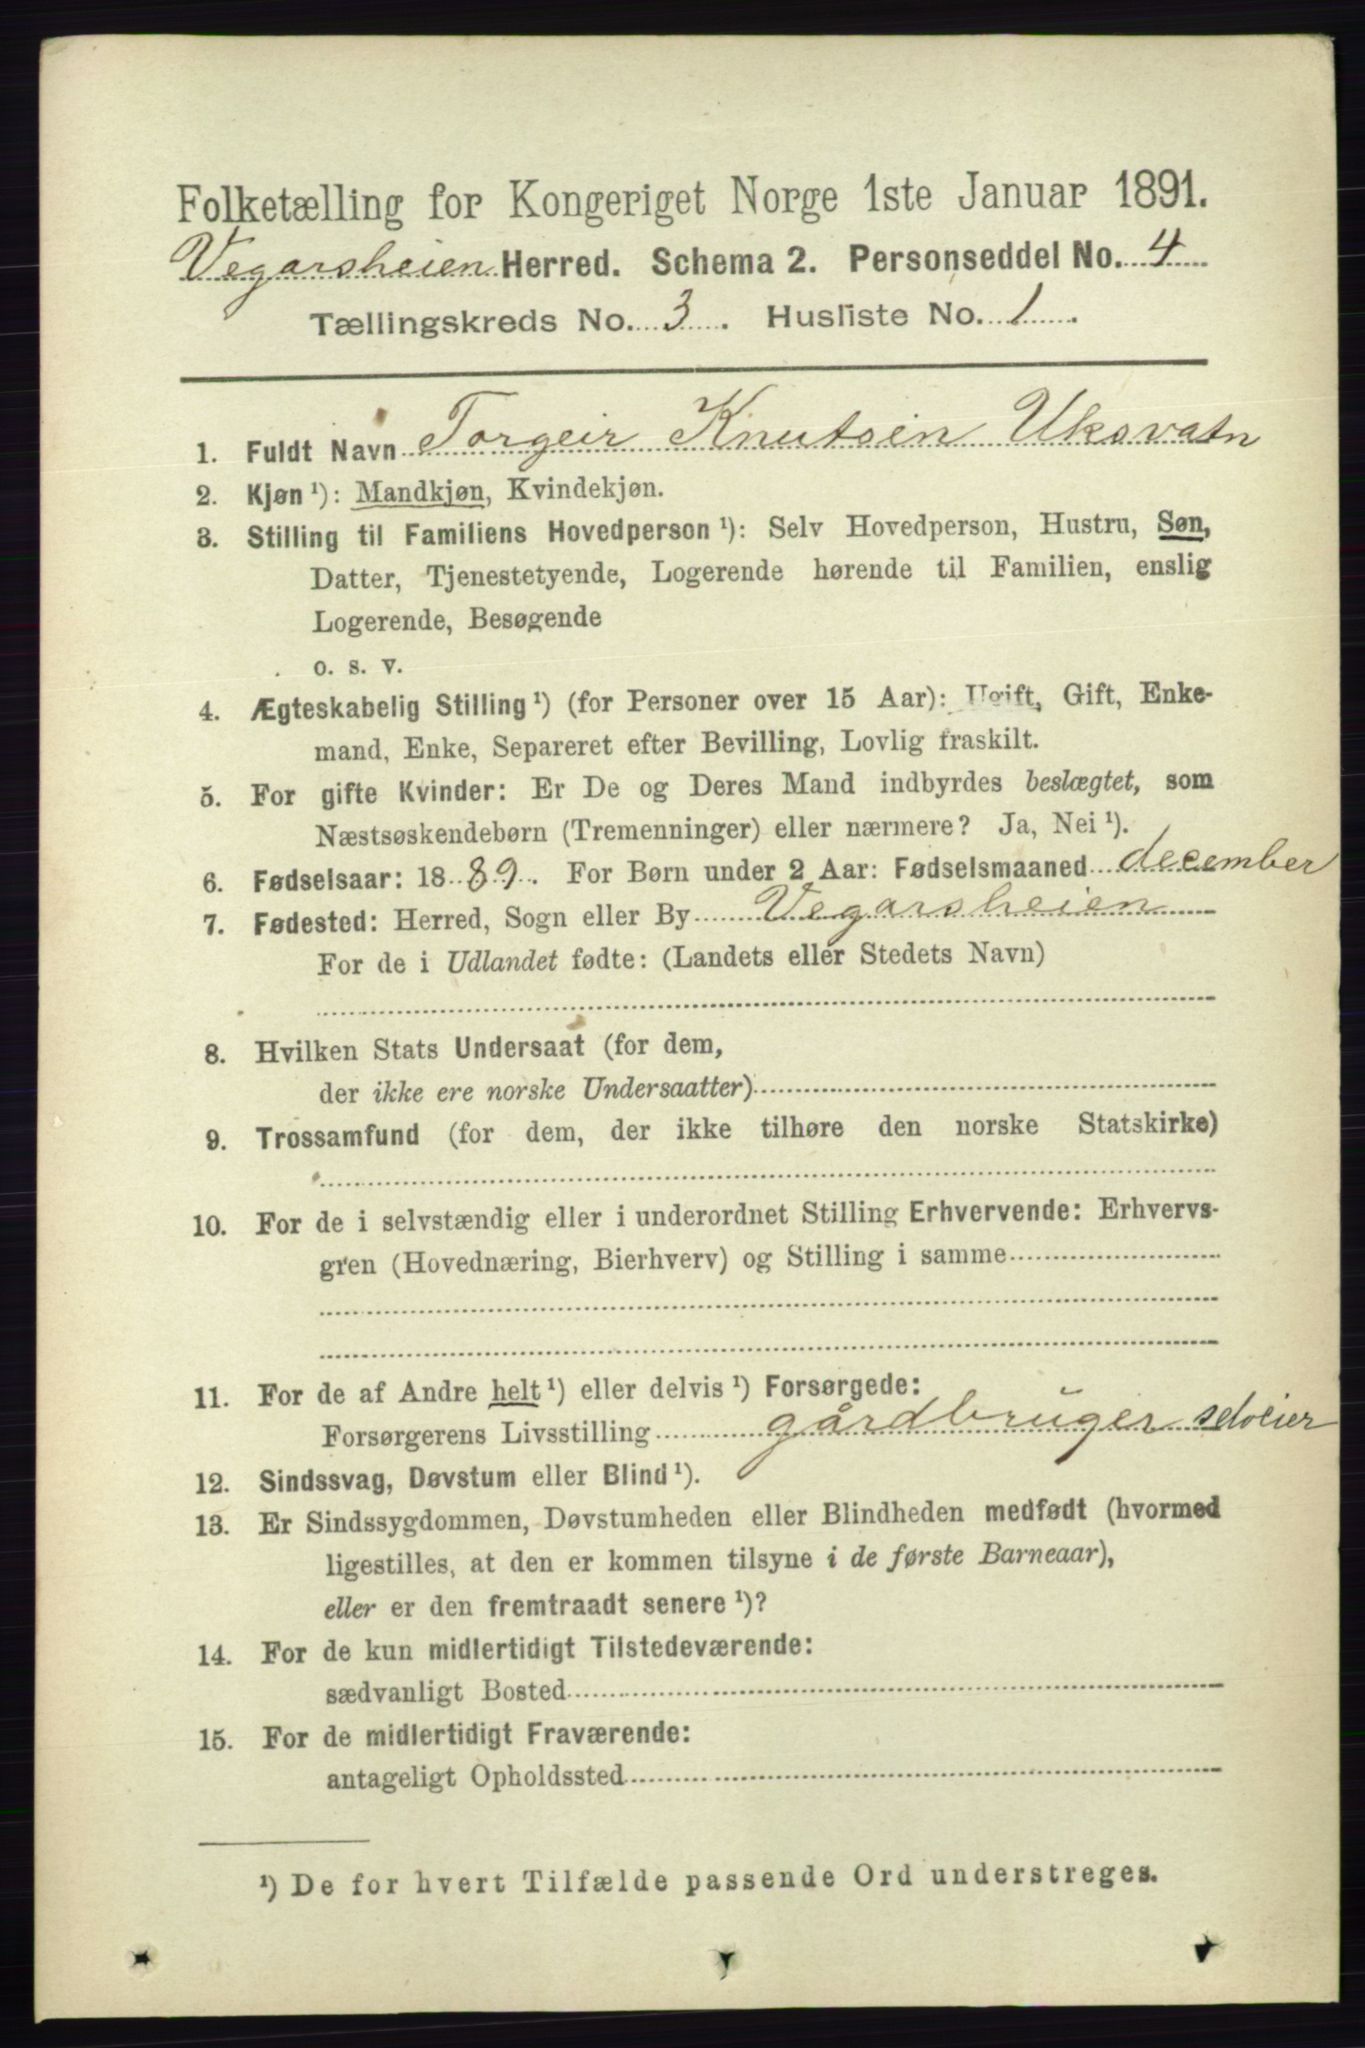 Folketælling for Kongeriget Norge 1ste Januar 1891.
Vegarsheien Herred. Schema 2. Personseddel No. 4
Tællingskreds No. 3. Husliste No. 1.
1. Fuldt Navn Torgeir Knutsen Uksvatn
2. Kjøn ¹): Mandkjøn, Kvindekjøn.
3. Stilling til Familiens Hovedperson ¹): Selv Hovedperson, Hustru, Søn,
Datter, Tjenestetyende, Logerende hørende til Familien, enslig
Logerende, Besøgende
o. s. v.
4. Ægteskabelig Stilling ¹) (for Personer over 15 Aar): Ugift, Gift, Enke-
mand, Enke, Separeret efter Bevilling, Lovlig fraskilt.
5. For gifte Kvinder: Er De og Deres Mand indbyrdes beslægtet, som
Næstsøskendebørn (Tremenninger) eller nærmere? Ja, Nei ¹).
6. Fødselsaar: 1889. For Børn under 2 Aar: Fødselsmaaned december
7. Fødested: Herred, Sogn eller By Vegarsheien
For de i Udlandet fødte: (Landets eller Stedets Navn)
8. Hvilken Stats Undersaat (for dem,
der ikke ere norske Undersaatter)
9. Trossamfund (for dem, der ikke tilhøre den norske Statskirke)
10. For de i selvstændig eller i underordnet Stilling Erhvervende: Erhvervs-
gren (Hovednæring, Bierhverv) og Stilling i samme
11. For de af Andre helt ¹) eller delvis ¹) Forsørgede:
Forsørgerens Livsstilling gårdbruger selveier
12. Sindssvag, Døvstum eller Blind ¹).
13. Er Sindssygdommen, Døvstumheden eller Blindheden medfødt (hvormed
ligestilles, at den er kommen tilsyne i de første Barneaar),
eller er den fremtraadt senere ¹)?
14. For de kun midlertidigt Tilstedeværende:
sædvanligt Bosted
15. For de midlertidigt Fraværende:
antageligt Opholdssted
¹) De for hvert Tilfælde passende Ord understreges.